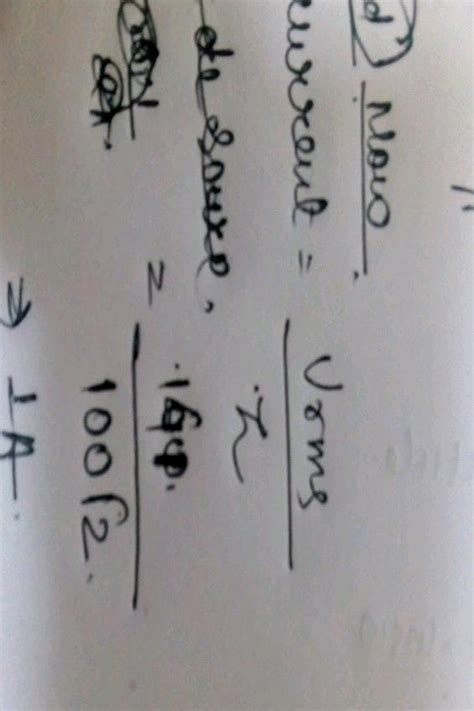 d) Now
current = Vrms / Z
de source,
= 100√2
→ 1A